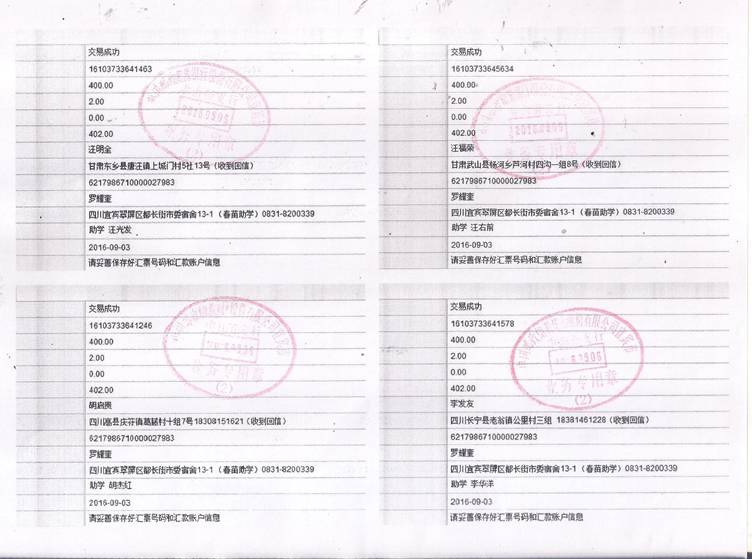 交易成功
16103733641463
400.00
2.00
0.00
402.00
汪明全
甘肃东乡县唐汪镇上城门村5社13号（收到回信）
6217986710000027983
罗耀奎
四川宜宾翠屏区都长街市委宿舍13-1（春苗助学）0831-8200339
助学 汪光发
2016-09-03
请妥善保存好汇票号码和汇款账户信息
交易成功
16103733645634
400.00
2.00
0.00
402.00
汪福荣
甘肃武山县杨河乡芦河村四沟一组8号（收到回信）
6217986710000027983
罗耀奎
四川宜宾翠屏区都长街市委宿舍13-1（春苗助学）0831-8200339
助学 汪右前
2016-09-03
请妥善保存好汇票号码和汇款账户信息
交易成功
16103733641246
400.00
2.00
0.00
402.00
胡启贵
四川高县庆符镇葛藤村十组7号18308151621（收到回信）
6217986710000027983
罗耀奎
四川宜宾翠屏区都长街市委宿舍13-1（春苗助学）0831-8200339
助学 胡杰红
2016-09-03
请妥善保存好汇票号码和汇款账户信息
业务专用章
(2)
交易成功
16103733641578
400.00
2.00
0.00
402.00
李发友
四川长宁县老翁镇公里村三组 18381461228（收到回信）
6217986710000027983
罗耀奎
四川宜宾翠屏区都长街市委宿舍13-1（春苗助学）0831-8200339
助学 李华洋
2016-09-03
请妥善保存好汇票号码和汇款账户信息
业务专用章
(2)